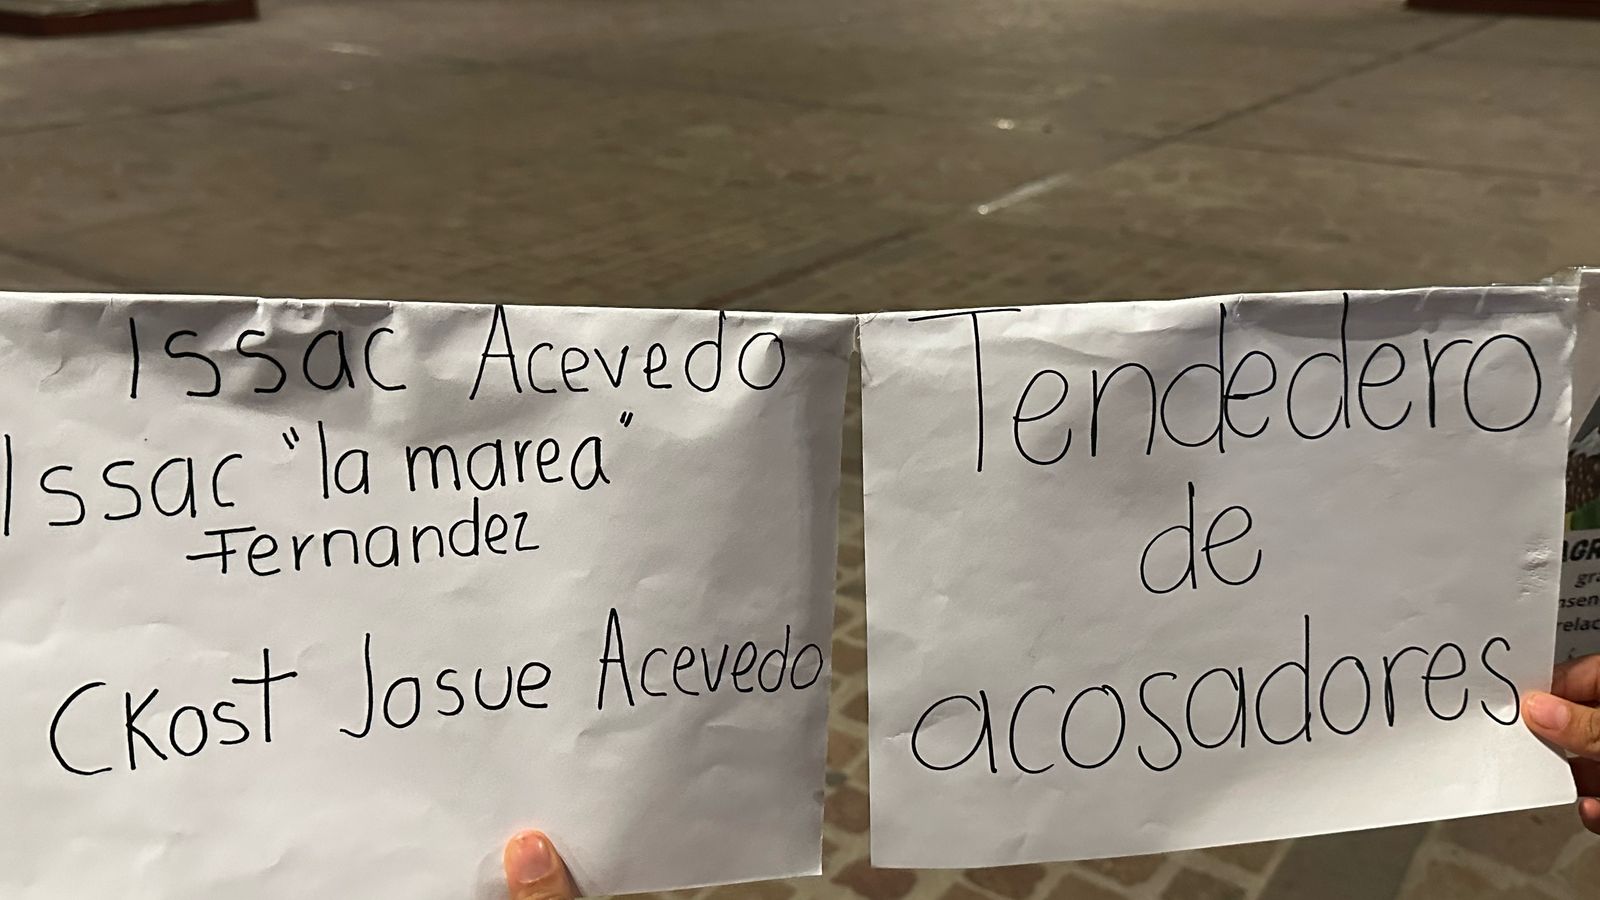 Issac Acevedo
Issac "la marea"
Fernandez
CKost Josue Acevedo
Tendedero
de
acosadores